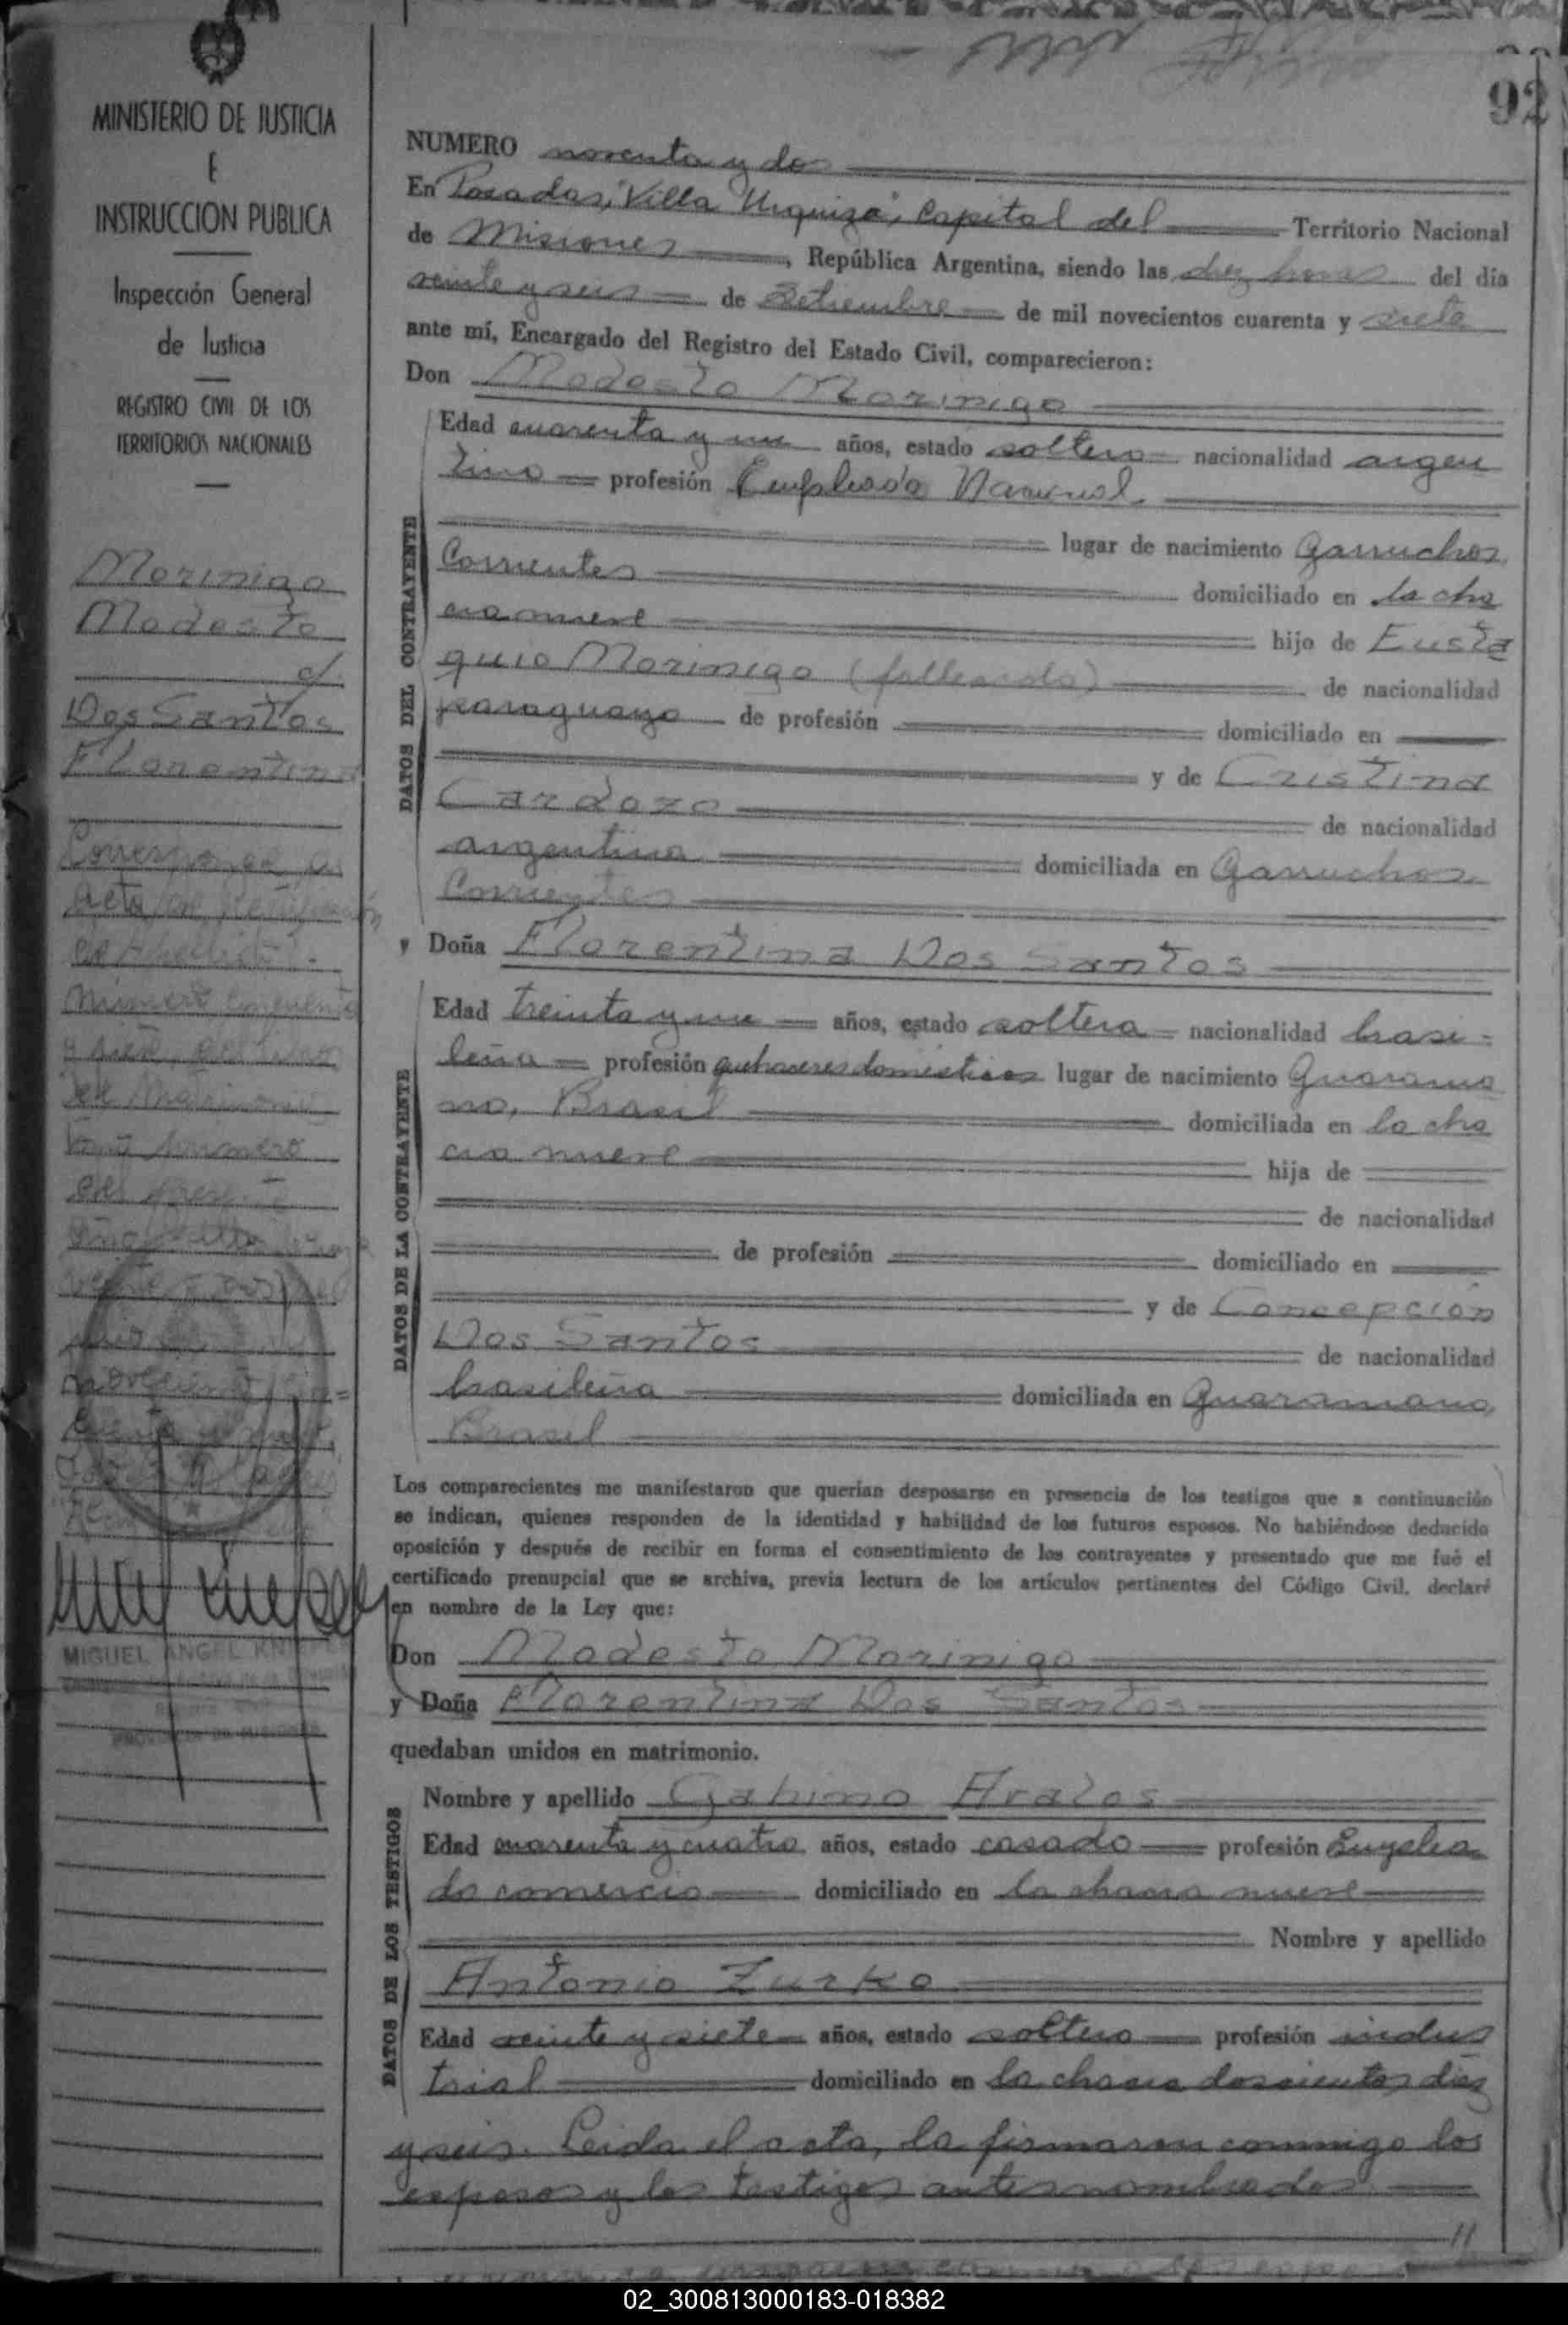 MINISTERIO DE JUSTICIA
E
INSTRUCCION PUBLICA
Inspección General
de Justicia
REGISTRO CIVIL DE LOS
TERRITORIOS NACIONALES
Morinigo
Modesto
c/.
Dos Santos
Florentina
Acta de
numero
MIGUEL ANGEL
92
NUMERO noventa y dos
En Posadas, "Villa Urquiza", Capital del Territorio Nacional
de Misiones, República Argentina, siendo las diez horas del día
veinte y seis de Setiembre de mil novecientos cuarenta y siete
ante mí, Encargado del Registro del Estado Civil, comparecieron:
Don Modesto Morinigo
DATOS DEL CONTRAYENTE
Edad cuarenta y un años, estado soltero nacionalidad argen
tino profesión Empleado Nacional
lugar de nacimiento Garruchos
Corrientes domiciliado en la cha
cra nueve hijo de Eusta
quio Morinigo (fallecido) de nacionalidad
paraguayo de profesión domiciliado en
y de Cristina
Cardozo de nacionalidad
argentina domiciliada en Garruchos
Corrientes
y Doña Florentina Dos Santos
DATOS DE LA CONTRAYENTE
Edad treinta y un años, estado soltera nacionalidad brasi-
leña profesión quehaceres domesticos lugar de nacimiento Guarama
no, Brasil domiciliada en la cha
cra nueve hija de
de nacionalidad
de profesión domiciliado en
y de Concepción
Dos Santos de nacionalidad
brasileña domiciliada en Guaramano,
Brasil
Los comparecientes me manifestaron que querían desposarse en presencia de los testigos que a continuación
se indican, quienes responden de la identidad y habilidad de los futuros esposos. No habiéndose deducido
oposición y después de recibir en forma el consentimiento de los contrayentes y presentado que me fué el
certificado prenupcial que se archiva, previa lectura de los artículos pertinentes del Código Civil, declaré
en nombre de la Ley que:
Don Modesto Morinigo
y Doña Florentina Dos Santos
quedaban unidos en matrimonio.
DATOS DE LOS TESTIGOS
Nombre y apellido Gabino Avalos
Edad cuarenta y cuatro años, estado casado profesión Emplea
do comercio domiciliado en la chacra nueve
Nombre y apellido
Antonio Zurko
Edad veinte y siete años, estado soltero profesión indus
trial domiciliado en la chacra doscientos diez
y seis. Leida el acta, la firmaron conmigo los
esposos y los testigos antes nombrados
//
02_300813000183-018382